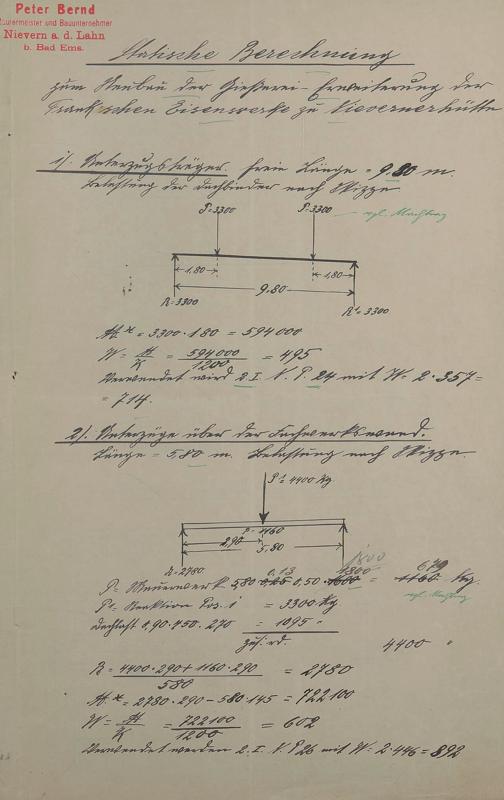 Peter Bernd
Maurermeister und Bauunternehmer
Nievern a. d. Lahn
b. Bad Ems.
Statische Berechnung
zum Neubau der Gießerei-Erweiterung der
Frank'schen Eisenwerke zu Nievernerhütte
1). Unterzugsträger. freie Länge = 9.80 m.
Belastung der Dachbinder nach Skizze
P= 3300 P= 3300 vgl. Nachtrag
1,80 1,80
9.80
R= 3300 R1= 3300
M.x = 3300 · 180 = 594000
W = M/K = 594000/1200 = 495
Verwendet wird 2. I. N. P. 24 mit W= 2 · 357 =
= 714.
2). Unterzüge über der Fachwerkswand.
Länge = 5,80 m. Belastung nach Skizze.
P1= 4400 Kg
P= 1160
2,90
5.80
R= 2780 0,13 1800 679
P= Mauerwerk 5,80 · 0,25 · 0,50 · 1600 = 1160 Kg.
vgl. Nachtrag
P1= Reaktion Pos. 1 = 3300 Kg
Dachlast 0,90 · 450 · 270 = 1095 "
zus. rd. 4400 "
R = 4400 · 290 + 1160 · 290 / 580 = 2780
M.x = 2780 · 290 – 580 · 145 = 722100
W = M/K = 722100/1200 = 602
Verwendet werden 2. I. N. P 26 mit W= 2 · 446 = 892